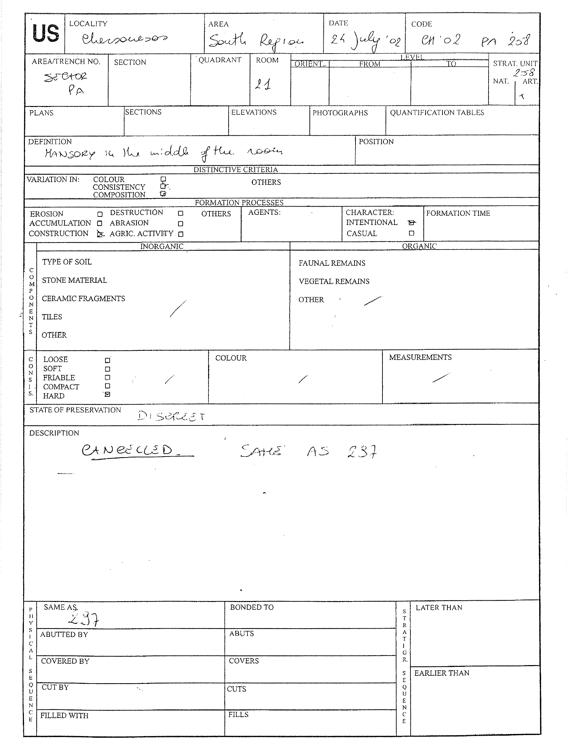 US
LOCALITY
Chersonesos
AREA
South Region
DATE
24 July '02
CODE
CH '02 PA 258
AREA/TRENCH NO.
SECTOR
PA
SECTION
QUADRANT
ROOM
21
LEVEL
ORIENT. FROM TO
STRAT. UNIT
258
NAT. ART.
PLANS
SECTIONS
ELEVATIONS
PHOTOGRAPHS
QUANTIFICATION TABLES
DEFINITION
MANSORY in the middle of the room
POSITION
DISTINCTIVE CRITERIA
VARIATION IN: COLOUR
CONSISTENCY
COMPOSITION
OTHERS
FORMATION PROCESSES
EROSION DESTRUCTION OTHERS
ACCUMULATION ABRASION
CONSTRUCTION AGRIC. ACTIVITY
AGENTS:
CHARACTER:
INTENTIONAL
CASUAL
FORMATION TIME
COMPONENTS
INORGANIC
TYPE OF SOIL
STONE MATERIAL
CERAMIC FRAGMENTS
TILES
OTHER
ORGANIC
FAUNAL REMAINS
VEGETAL REMAINS
OTHER
CONSIS.
LOOSE
SOFT
FRIABLE
COMPACT
HARD
COLOUR
MEASUREMENTS
STATE OF PRESERVATION
DISCREET
DESCRIPTION
CANCELLED. SAME AS 237
PHYSICAL SEQUENCE
SAME AS
237
BONDED TO
ABUTTED BY
ABUTS
COVERED BY
COVERS
CUT BY
CUTS
FILLED WITH
FILLS
STRATIGR. SEQUENCE
LATER THAN
EARLIER THAN